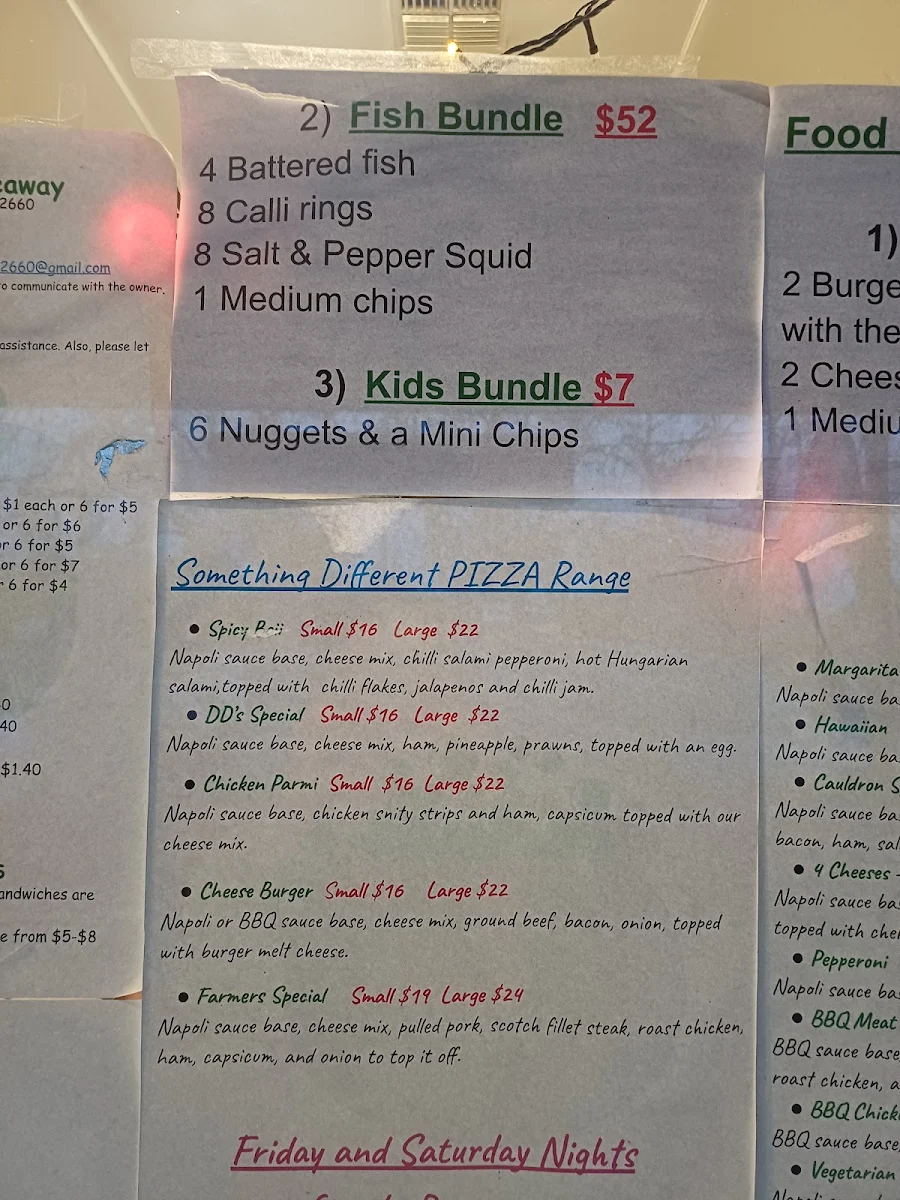 eaway
2660
2660@gmail.com
to communicate with the owner.
assistance. Also, please let
$1 each or 6 for $5
or 6 for $6
or 6 for $5
or 6 for $7
6 for $4
40
$1.40
andwiches are
e from $5-$8
2) Fish Bundle $52
4 Battered fish
8 Calli rings
8 Salt & Pepper Squid
1 Medium chips
3) Kids Bundle $7
6 Nuggets & a Mini Chips
Something Different PIZZA Range
• Spicy Small $16 Large $22
Napoli sauce base, cheese mix, chilli salami pepperoni, hot Hungarian
salami,topped with chilli flakes, jalapenos and chilli jam.
• DD's Special Small $16 Large $22
Napoli sauce base, cheese mix, ham, pineapple, prawns, topped with an egg.
• Chicken Parmi Small $16 Large $22
Napoli sauce base, chicken snity strips and ham, capsicum topped with our
cheese mix.
• Cheese Burger Small $16 Large $22
Napoli or BBQ sauce base, cheese mix, ground beef, bacon, onion, topped
with burger melt cheese.
• Farmers Special Small $19 Large $24
Napoli sauce base, cheese mix, pulled pork, scotch fillet steak, roast chicken,
ham, capsicum, and onion to top it off.
Friday and Saturday Nights
Food
1)
2 Burge
with the
2 Chees
1 Mediu
• Margarita
Napoli sauce ba
• Hawaiian
Napoli sauce ba
• Cauldron S
Napoli sauce ba
bacon, ham, sal
• 4 Cheeses -
Napoli sauce ba
topped with cher
• Pepperoni
Napoli sauce ba
• BBQ Meat
BBQ sauce base
roast chicken, a
• BBQ Chick
BBQ sauce base,
• Vegetarian